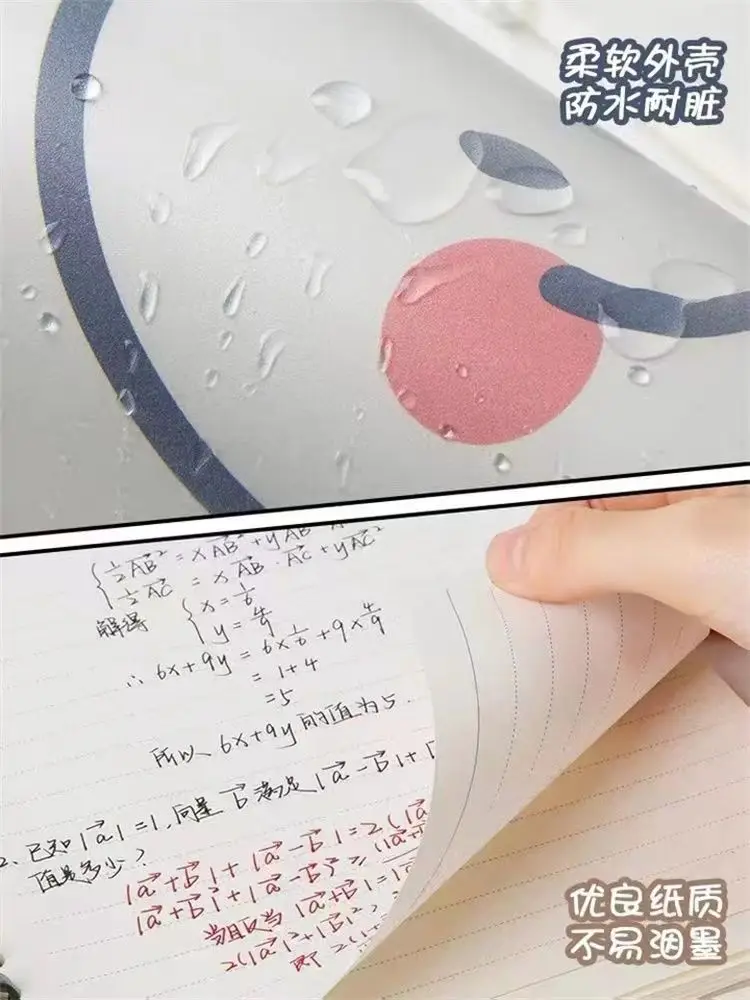 柔软外壳
防水耐脏
½AB⃗² = xAB⃗² + yAB⃗
½AC⃗ = xAB⃗ · AC⃗ + yAC⃗²
解得
x = 1/6
y = 4/9
∴ 6x+9y = 6×1/6 + 9×4/9
= 1+4
=5
所以 6x+9y 的值为5.
2. 已知 |a⃗|=1, 向量 b⃗ 满足 |a⃗-b⃗|+|
值是多少?
|a⃗+b⃗|+|a⃗-b⃗|=2(|a⃗
|a⃗+b⃗|²+|a⃗-b⃗|² ≥ (|a⃗+b⃗
当且仅当 |a⃗+b⃗|=|a⃗
2(|a⃗|²+|b⃗|²) ≥
即 2(1+
优良纸质
不易洇墨